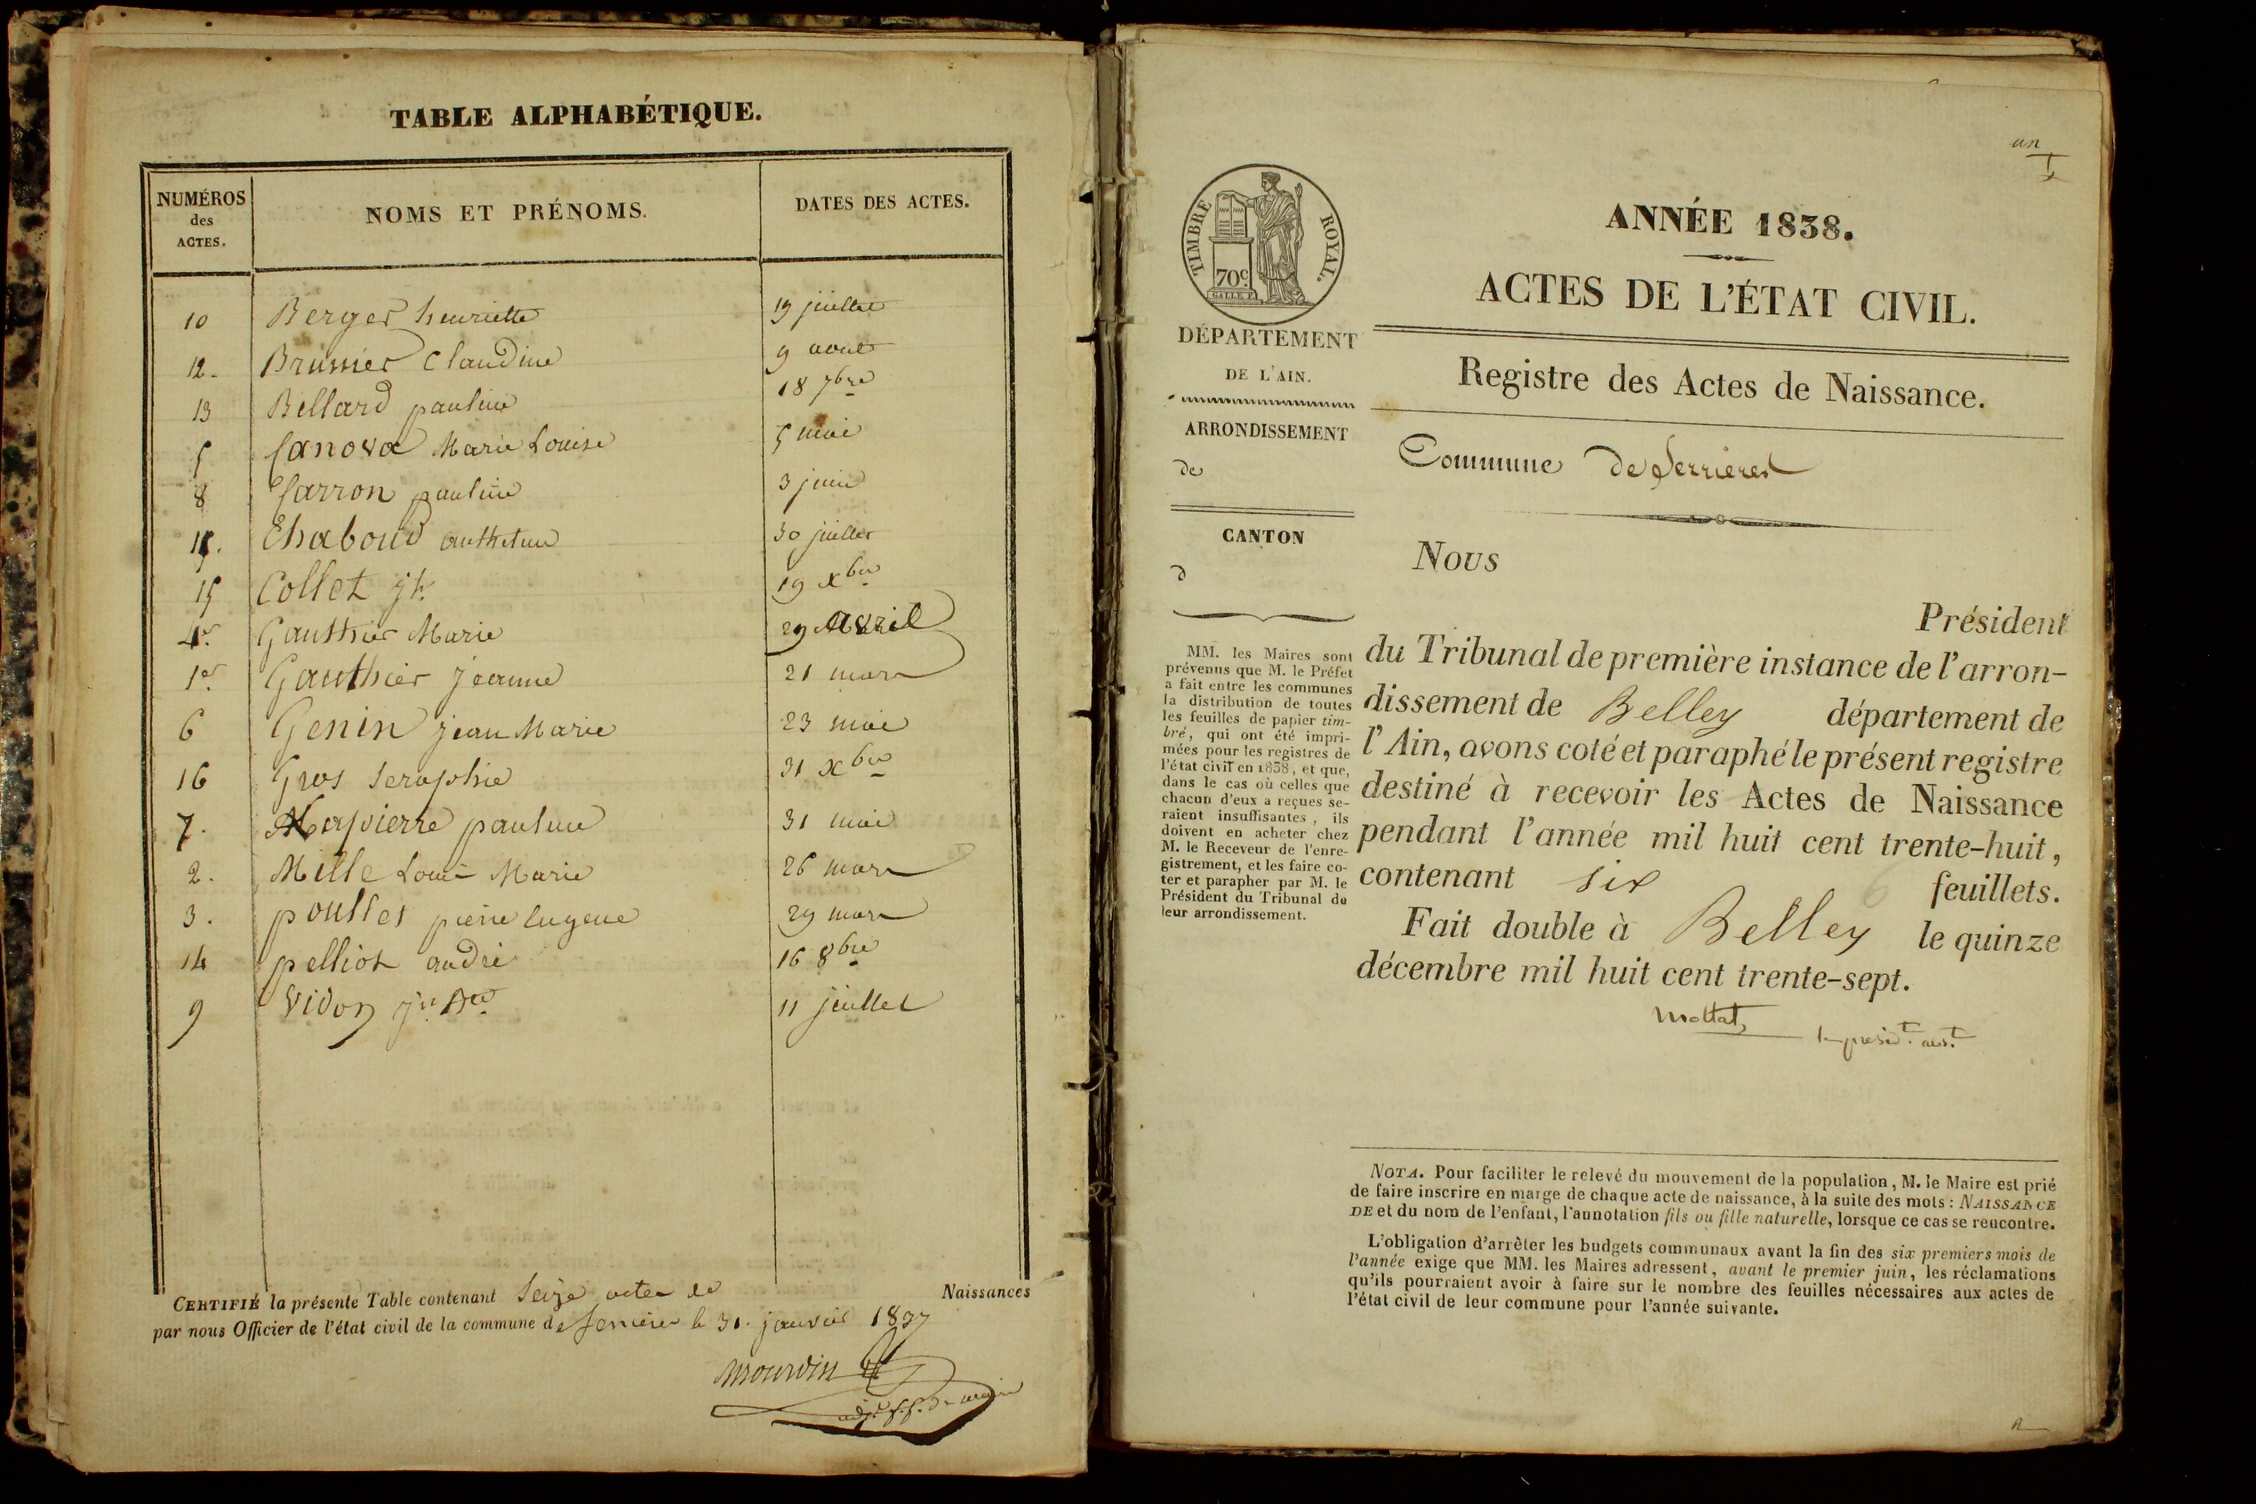 TABLE ALPHABÉTIQUE.
NUMÉROS des ACTES. NOMS ET PRÉNOMS. DATES DES ACTES.
10 Berger henriette 19 juillet
12. Brunier Claudine 9 aout
13 Bellard pauline 18 7bre
5 Canova Marie Louise 5 mai
8 Carron pauline 3 juin
11. Chaboud 30 juillet
15 Collet jh. 19 Xbre
4e. Gauthier Marie 29 Avril
1er. Gauthier jeanne 21 mars
6 Genin jean Marie 23 mai
16 Gros Seraphie 31 Xbre
7. pauline 31 mai
2. Mille Louis Marie 26 mars
3. poullet pierre Eugene 29 mars
14 pelliot andré 16 8bre
9 Vidon 11 juillet
CERTIFIÉ la présente Table contenant Seize actes de Naissances
par nous Officier de l'état civil de la commune de Serrieres le 31. janvier 1837
Mourdin
adj. f.f. de maire
un
1
TIMBRE ROYAL.
70c
DÉPARTEMENT
DE L'AIN.
ARRONDISSEMENT
de
CANTON
d
MM. les Maires sont
prévenus que M. le Préfet
a fait entre les communes
la distribution de toutes
les feuilles de papier tim-
bré, qui ont été impri-
mées pour les registres de
l'état civil en 1838, et que,
dans le cas où celles que
chacun d'eux a reçues se-
raient insuffisantes, ils
doivent en acheter chez
M. le Receveur de l'enre-
gistrement, et les faire co-
ter et parapher par M. le
Président du Tribunal de
leur arrondissement.
ANNÉE 1838.
ACTES DE L'ÉTAT CIVIL.
Registre des Actes de Naissance.
Commune de Serrieres
Nous
Président
du Tribunal de première instance de l'arron-
dissement de Belley département de
l'Ain, avons coté et paraphé le présent registre
destiné à recevoir les Actes de Naissance
pendant l'année mil huit cent trente-huit,
contenant six 6 feuillets.
Fait double à Belley le quinze
décembre mil huit cent trente-sept.
Mottat
NOTA. Pour faciliter le relevé du mouvement de la population, M. le Maire est prié
de faire inscrire en marge de chaque acte de naissance, à la suite des mots : NAISSANCE
DE et du nom de l'enfant, l'annotation fils ou fille naturelle, lorsque ce cas se rencontre.
L'obligation d'arrêter les budgets communaux avant la fin des six premiers mois de
l'année exige que MM. les Maires adressent, avant le premier juin, les réclamations
qu'ils pourraient avoir à faire sur le nombre des feuilles nécessaires aux actes de
l'état civil de leur commune pour l'année suivante.